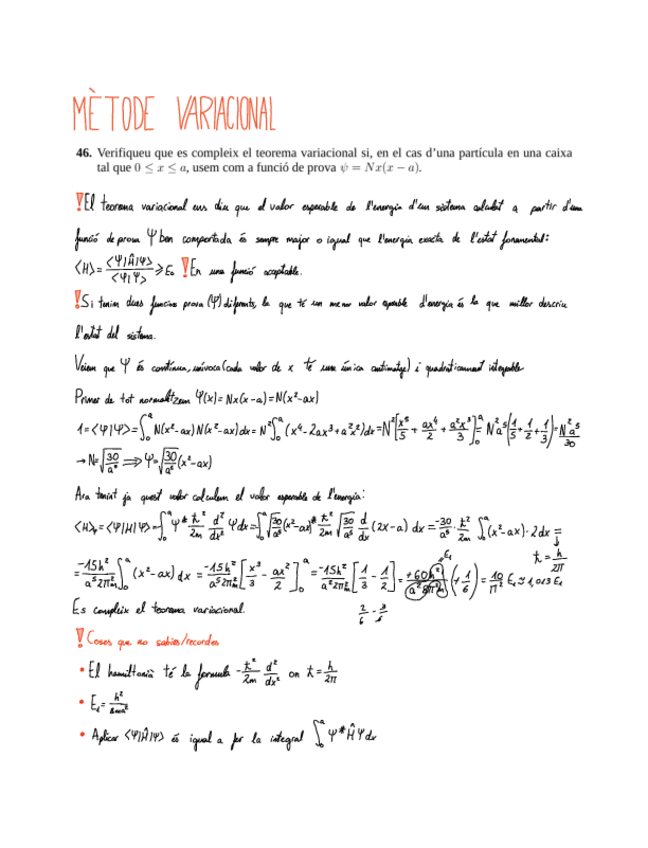 MÈTODE VARIACIONAL
46. Verifiqueu que es compleix el teorema variacional si, en el cas d'una partícula en una caixa
tal que 0 ≤ x ≤ a, usem com a funció de prova ψ = Nx(x − a).
!El teorema variacional ens diu que el valor esperable de l'energia d'un sistema calculat a partir d'una
funció de prova Ψ ben comportada és sempre major o igual que l'energia exacta de l'estat fonamental:
⟨H⟩ = ⟨Ψ|Ĥ|Ψ⟩ / ⟨Ψ|Ψ⟩ ≥ E₀ !En una funció acceptable.
!Si tenim dues funcions prova (Ψ) diferents, la que té un menor valor esperable d'energia és la que millor descriu
l'estat del sistema.
Veiem que Ψ és contínua, unívoca (cada valor de x té una única antimatge) i quadràticament integrable
Primer de tot normalitzem Ψ(x) = Nx(x-a) = N(x²-ax)
1 = ⟨Ψ|Ψ⟩ = ∫₀ᵃ N(x²-ax) N(x²-ax) dx = N² ∫₀ᵃ (x⁴ - 2ax³ + a²x²) dx = N² [x⁵/5 + ax⁴/2 + a²x³/3]₀ᵃ = N² a⁵ (1/5 + 1/2 + 1/3) = N² a⁵/30
→ N = √(30/a⁵) ⟹ Ψ = √(30/a⁵) (x²-ax)
Ara tenint ja aquest valor calculem el valor esperable de l'energia:
⟨H⟩ᵩ = ⟨Ψ|H|Ψ⟩ = ∫₀ᵃ Ψ* ħ²/2m d²/dx² Ψ dx = ∫₀ᵃ √(30/a⁵) (x²-ax)* ħ²/2m √(30/a⁵) d/dx (2x-a) dx = -30/a⁵ · ħ²/2m ∫₀ᵃ (x²-ax) · 2 dx =
ħ = h/2π
= -15h²/a⁵2π²m ∫₀ᵃ (x²-ax) dx = -15h²/a⁵2π²m [x³/3 - ax²/2]₀ᵃ = -15h²/a²2π²m [1/3 - 1/2] = +60h²/a²8π²m (+1/6) = 10/π² E₁ ≈ 1,013 E₁
E₁
2/6 - 3/6
Es compleix el teorema variacional.
! Coses que no sabies/recordes
• El hamiltonià té la formula -ħ²/2m d²/dx² on ħ = h/2π
• E₁ = h²/8ma²
• Aplicar ⟨Ψ|Ĥ|Ψ⟩ és igual a fer la integral ∫₀ᵃ Ψ* Ĥ Ψ dx